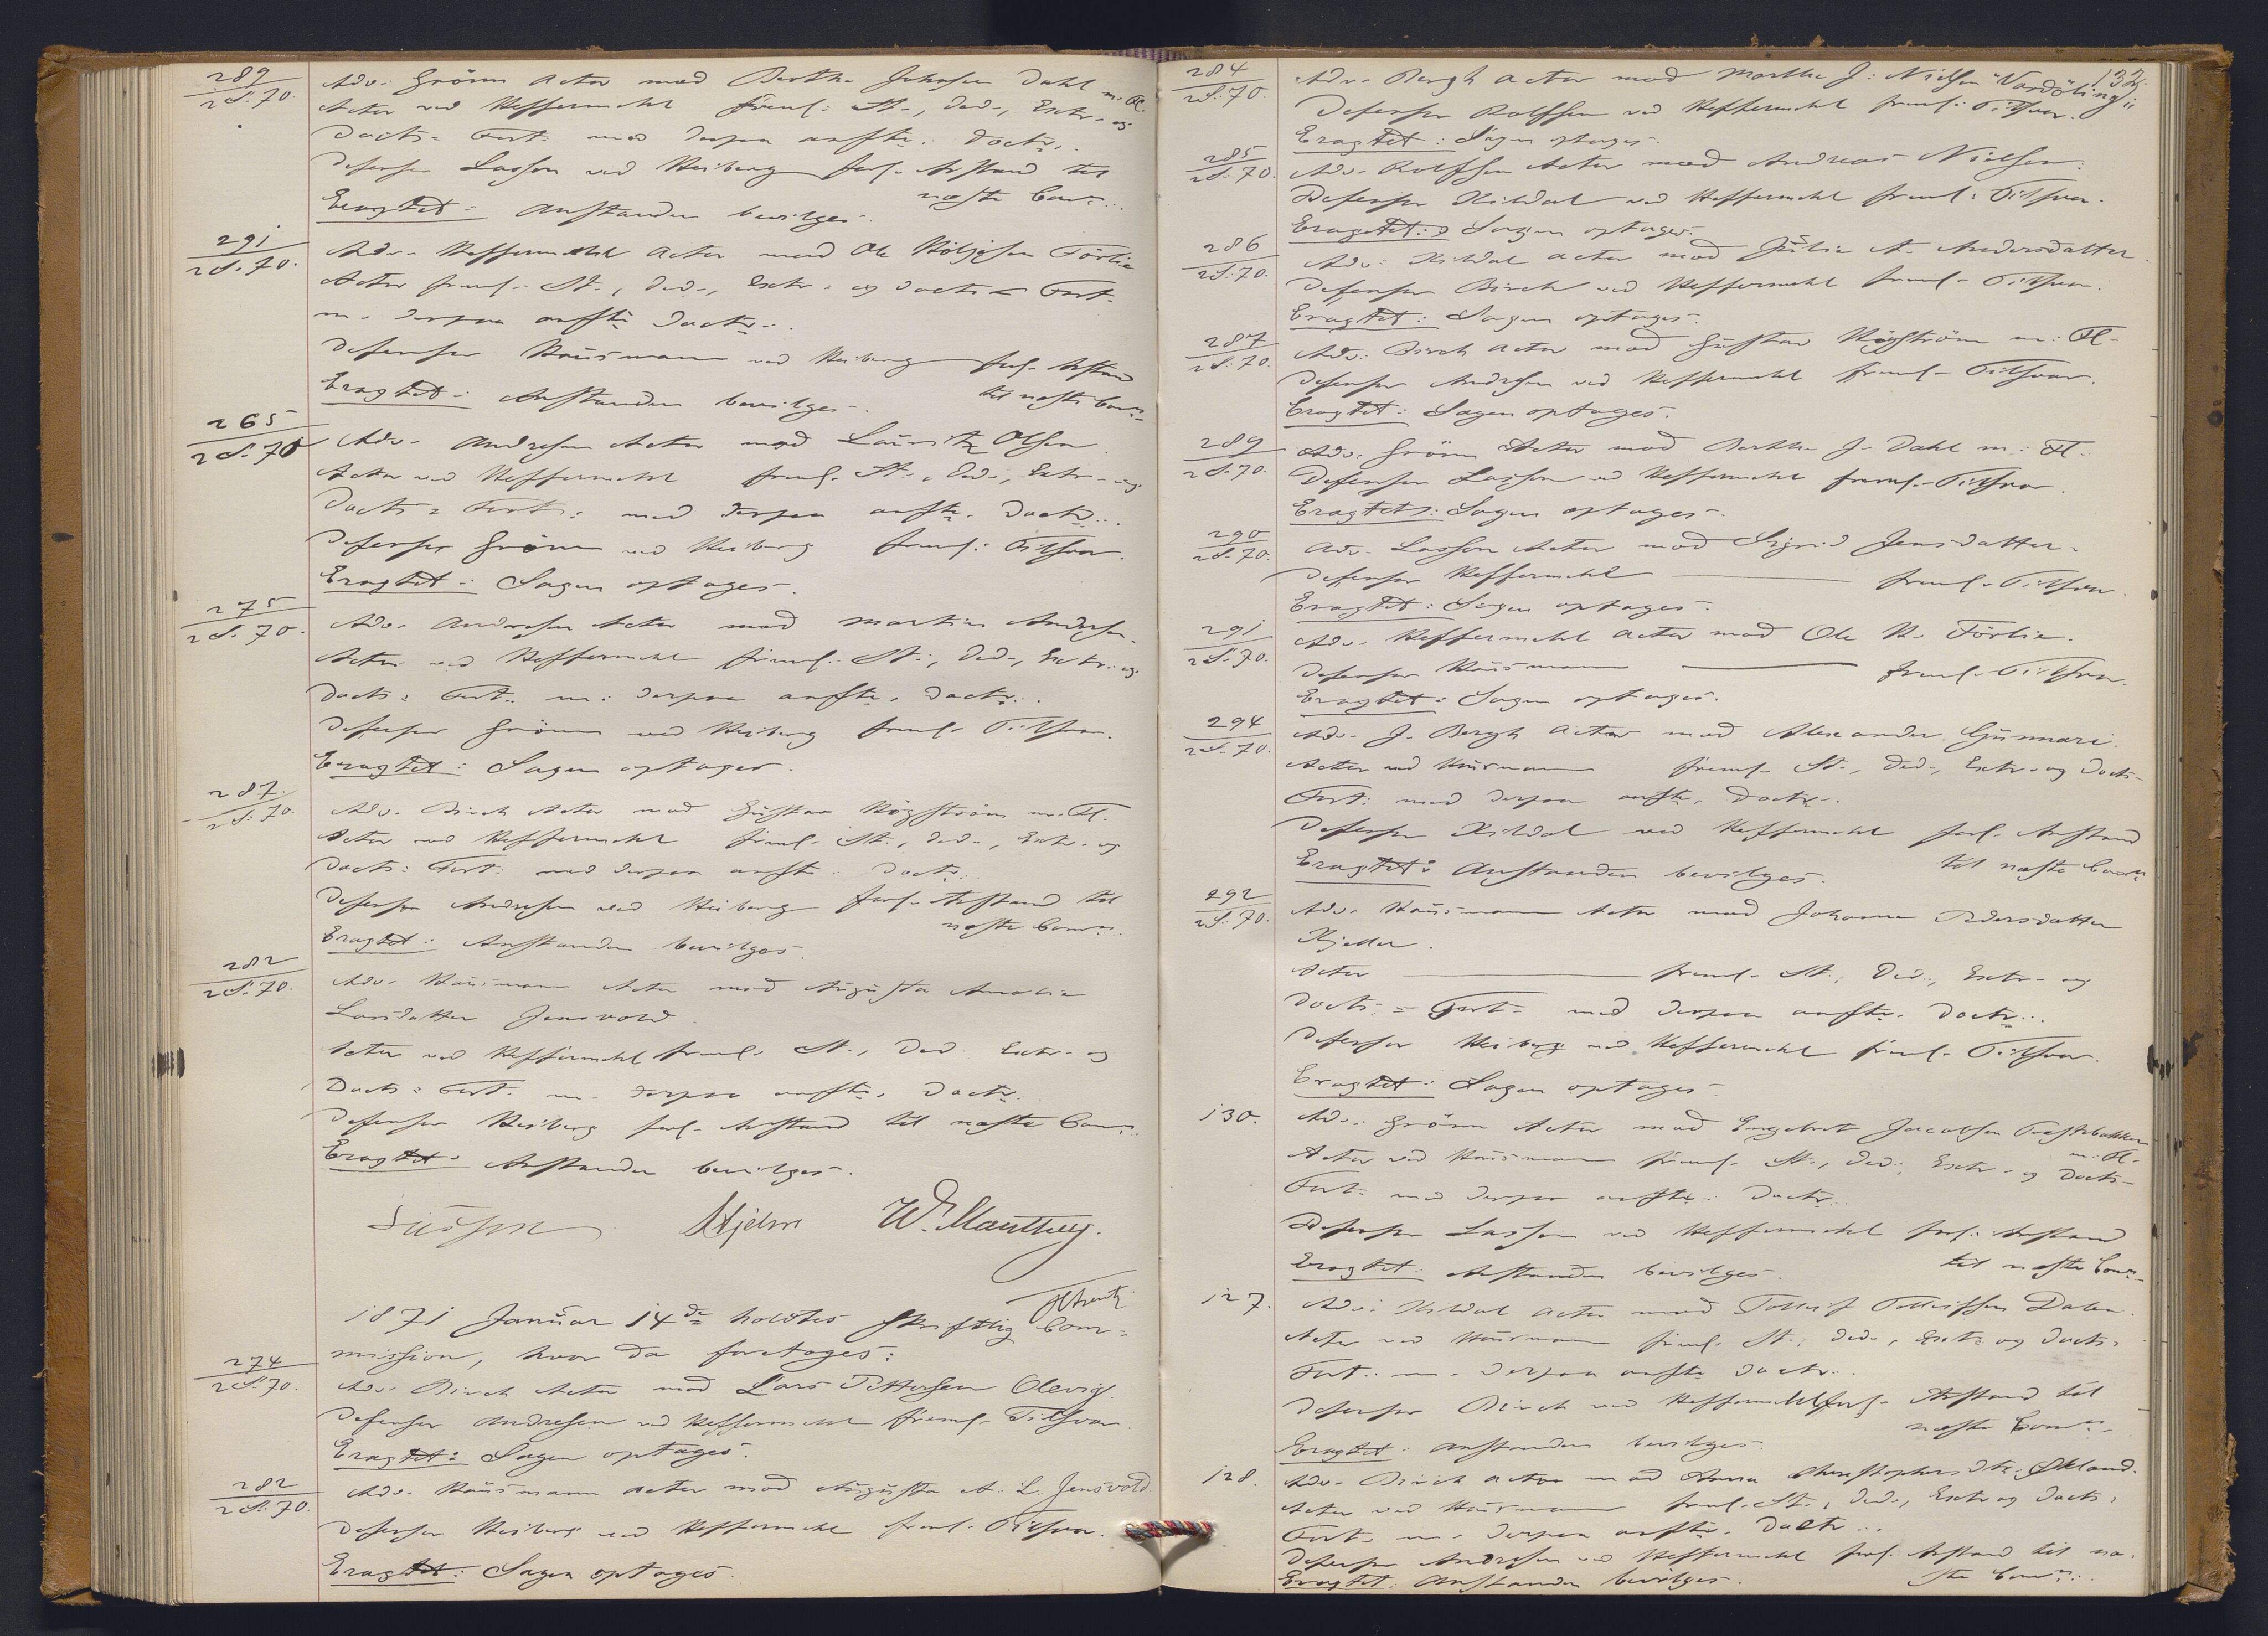 289
2 S. 70.
Adv. Grönn Actor mod Berthe Johnsen Dahl m. Fl.
Actor ved Heffermehl freml. St., Ded., Extr. og
Docts. Fort. med derpaa anfte. Doctr.
Defensor Lasson ved Heiberg forl. Anstand til
næste Comm.
Eragtet: Anstanden bevilges.
291
2 S. 70.
Adv. Heffermehl Actor mod Ole Förlie
Actor freml. St., Ded., Extr. og Docts. Fort.
m. derpaa anfte Doctr.
Defensor Hausmann ved Heiberg forl. Anstand
til næste Comm.
Eragtet: Anstanden bevilges.
265
2 S. 70
Adv. Andresen Actor mod Lauritz Olsen
Actor ved Heffermehl freml. St., Ded., Extr. og
Docts. Fort. med derpaa anfte. Doctr.
Defensor Grönn ved Heiberg freml. Tilsvar.
Eragtet: Sagen optages.
275
2 S. 70.
Adv. Andresen Actor mod Martin Andersen.
Actor ved Heffermehl freml. St., Ded., Extr. og
Docts. Fort. m. derpaa anfte. Doctr.
Defensor Grönn ved Heiberg freml. Tilsvar.
Eragtet: Sagen optages.
287.
2 S. 70.
Adv. Birch Actor mod Gustav Högström m. Fl.
Actor ved Heffermehl freml. St., Ded., Extr. og
Docts. Fort. med derpaa anfte. Doctr.
Defensor Andresen ved Heiberg forl. Anstand til
næste Comm.
Eragtet: Anstanden bevilges.
282
2 S. 70.
Adv. Hausmann Actor mod Augusta Amalia
Larsdatter Jensvold.
Actor ved Heffermehl freml. St., Ded. Extr. og
Docts. Fort. m. derpaa anfte. Doctr.
Defensor Heiberg forl. Anstand til næste Comm.
Eragtet: Anstanden bevilges.
Hjelm W. Manthey.
1871 Januar 14de holdtes skriftlig Com-
mission, hvor da foretoges:
274
2 S. 70.
Adv. Birch Actor mod Lars Pettersen Olevig.
Defensor Andresen ved Heffermehl freml. Tilsvar
Eragtet: Sagen optages.
282
2 S. 70.
Adv. Hausmann Actor mod Augusta A. L. Jensvold.
Defensor Heiberg ved Heffermehl freml. Tilsvar.
Eragtet: Sagen optages.
132.
284
2 S. 70.
Adv. Bergh Actor mod Marthe J. Nielsen "Vardöling"
Defensor Rolffsen ved Heffermehl freml. Tilsvar.
Eragtet: Sagen optages.
285
2 S. 70.
Adv. Rolffsen Actor mod Andreas Nielsen.
Defensor Kildal ved Heffermehl freml. Tilsvar.
Eragtet: Sagen optages.
286
2 S. 70.
Adv. Kildal Actor mod Julie A. Andersdatter.
Defensor Birch ved Heffermehl freml. Tilsvar.
Eragtet: Sagen optages.
287
2 S. 70.
Adv. Birch Actor mod Gustav Högström m. Fl.
Defensor Andresen ved Heffermehl freml. Tilsvar.
Eragtet: Sagen optages.
289
2 S. 70.
Adv. Grönn Actor mod Berthe J. Dahl m. Fl.
Defensor Lasson ved Heffermehl freml. Tilsvar.
Eragtet: Sagen optages.
290
2 S. 70.
Adv. Lasson Actor mod Sigrid Jensdatter.
Defensor Heffermehl freml. Tilsvar.
Eragtet: Sagen optages.
291
2 S. 70.
Adv. Heffermehl Actor mod Ole H. Förlie.
Defensor Hausmann freml. Tilsvar.
Eragtet: Sagen optages.
294
2 S. 70.
Adv. J. Bergh Actor mod Alexander Gunnari.
Actor ved Hausmann freml. St., Ded., Extr. og Docts.
Fort. med derpaa anfte. Doctr.
Defensor Kildal ved Heffermehl forl. Anstand
til næste Comm.
Eragtet: Anstanden bevilges.
292
2 S. 70.
Adv. Hausmann Actor mod Johanne Pedersdatter
Kjeller.
Actor freml. St., Ded., Extr. og
Docts. Fort. med derpaa anfte. Doctr.
Defensor Heiberg ved Heffermehl freml. Tilsvar.
Eragtet: Sagen optages.
130.
Adv. Grönn Actor mod Engebret Jacobsen
m. Fl.
Actor ved Hausmann freml. St., Ded., Extr. og Docts.
Fort. med derpaa anfte. Doctr.
Defensor Lasson ved Heffermehl forl. Anstand
til næste Comm.
Eragtet: Anstanden bevilges.
127.
Adv. Kildal Actor mod Tollef Tollefsen Dalen.
Actor ved Hausmann freml. St., Ded., Extr. og Docts.
Fort. m. derpaa anfte Doctr.
Defensor Birch ved Heffermehl forl. Anstand til
næste Comm.
Eragtet: Anstanden bevilges.
128.
Adv. Birch Actor mod Anna Christophersdtr. Økland.
Actor ved Hausmann freml. St., Ded., Extr. og Docts.
Fort. m. derpaa anfte. Doctr.
Defensor Andresen ved Heffermehl forl. Anstand til næ-
ste Comm.
Eragtet: Anstanden bevilges.